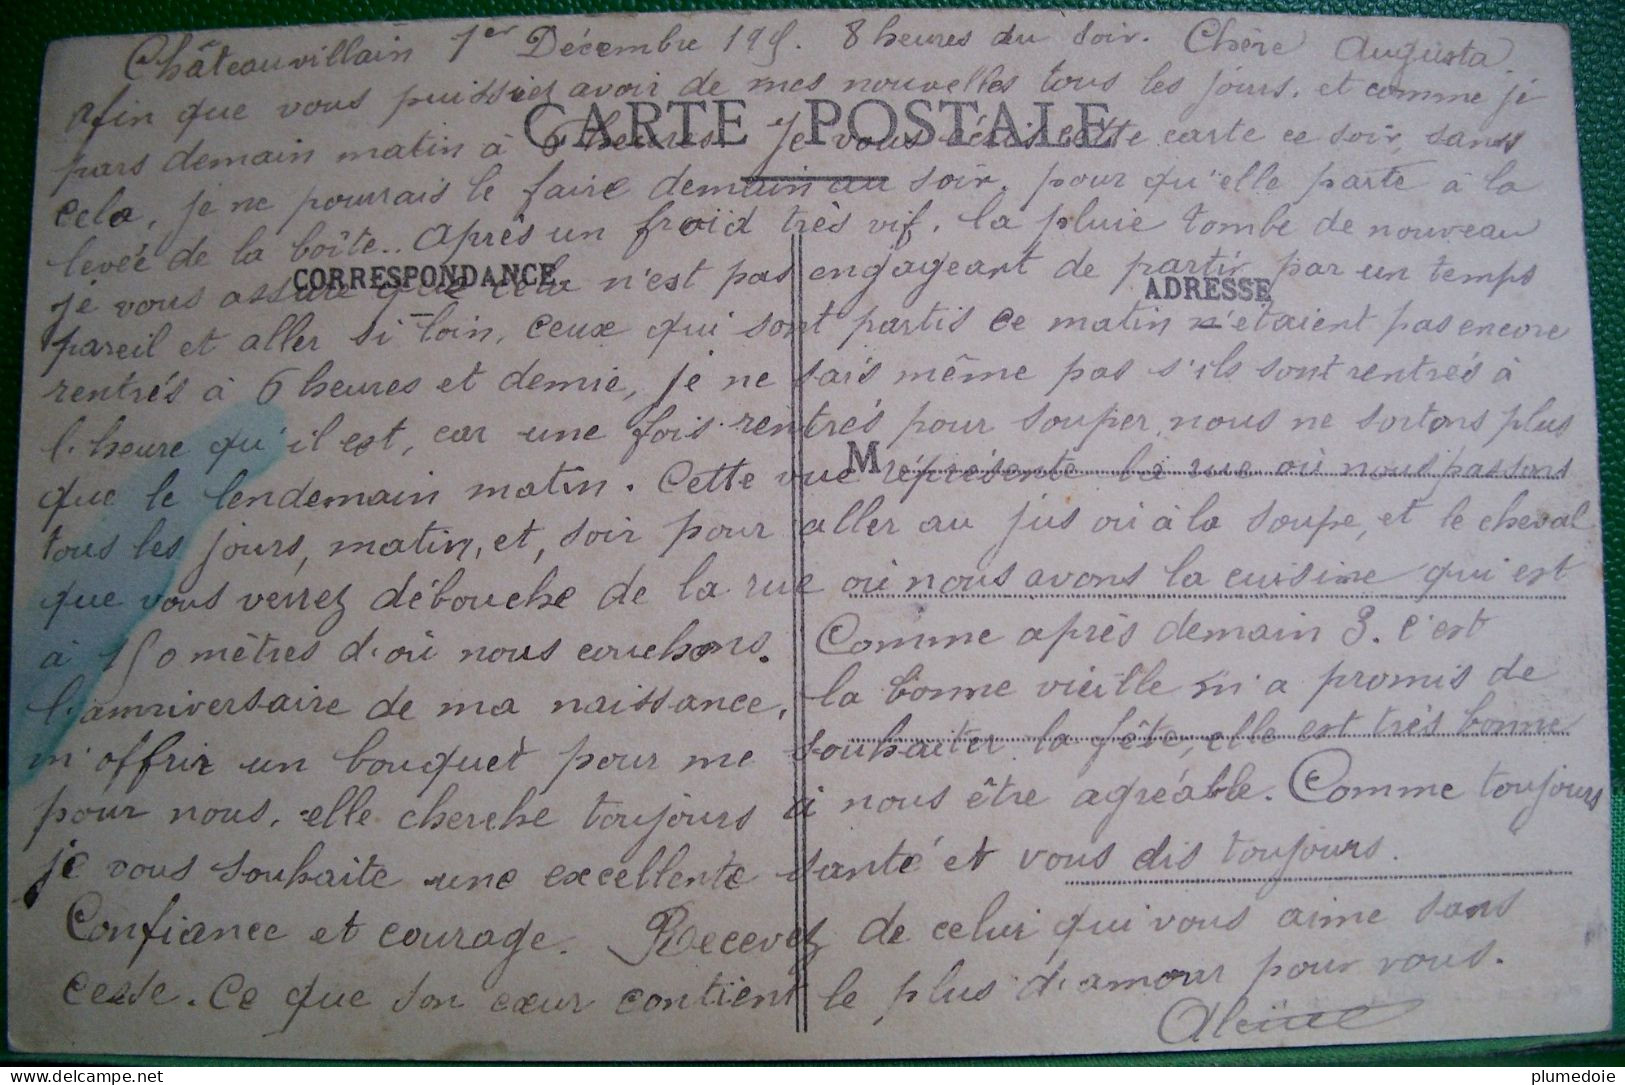 Châteauvillain 1er Décembre 195. 8 heures du soir. Chère Augusta
Afin que vous puissiez avoir de mes nouvelles tous les jours. et comme je
CARTE POSTALE
pars demain matin à 6 heures. Je vous écris cette carte ce soir, sans
cela, je ne pourrais le faire demain au soir. pour qu'elle parte à la
levée de la boîte.. Après un froid très vif, la pluie tombe de nouveau
CORRESPONDANCE
ADRESSE
je vous assure que cela n'est pas engageant de partir par un temps
pareil et aller si loin, ceux qui sont partis ce matin n'étaient pas encore
rentrés à 6 heures et demie, je ne sais même pas s'ils sont rentrés à
l'heure qu'il est, car une fois rentrés pour souper, nous ne sortons plus
M
que le lendemain matin. Cette vue réprésente la rue où nous passons
tous les jours, matin, et, soir pour aller au jus où à la soupe, et le cheval
que vous verrez débouche de la rue où nous avons la cuisine qui est
à 150 mètres d'où nous couchons. Comme après demain 3. c'est
l'anniversaire de ma naissance, la bonne vieille m'a promis de
m'offrir un bouquet pour me souhaiter la fête, elle est très bonne
pour nous, elle cherche toujours à nous être agréable. Comme toujours
je vous souhaite une excellente santé et vous dis toujours.
Confiance et courage. Recevez de celui qui vous aime sans
cesse. Ce que son cœur contient le plus d'amour pour vous.
plumedoie